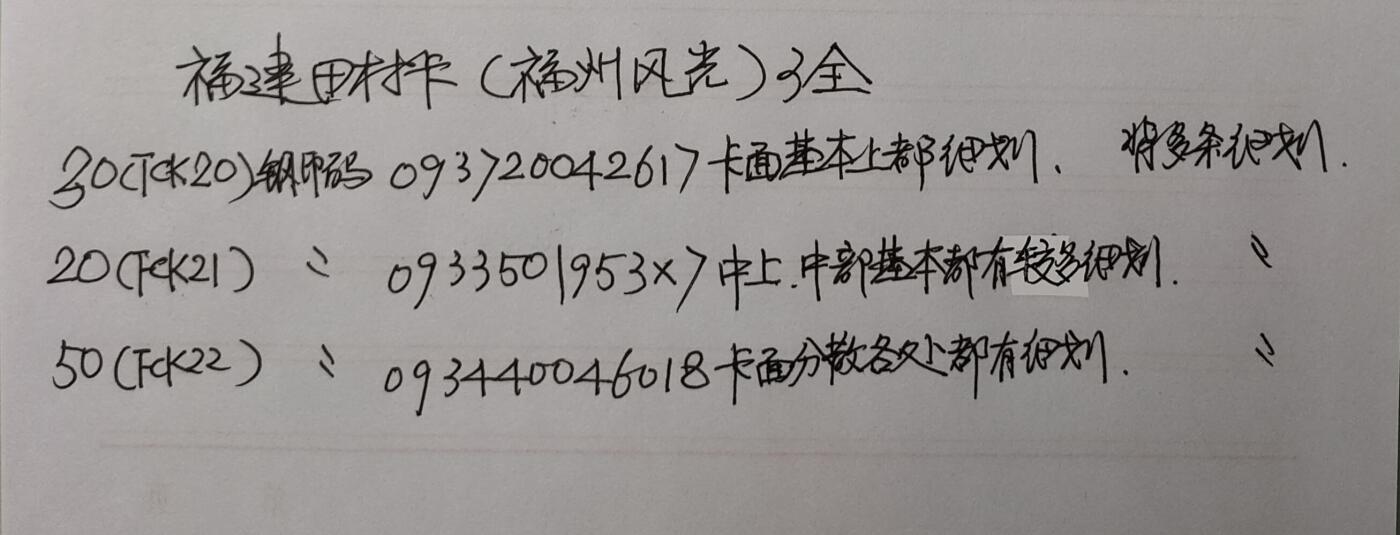 福建田村卡（福州风光）3全
30(TCK20)钢印码 093720042617卡面基本上都细划. 背多条细划.
20(TCK21) 〃 0933501953×7中上.中部基本都有较多细划. 〃
50(TCK22) 〃 093440046018卡面分散各处都有细划. 〃